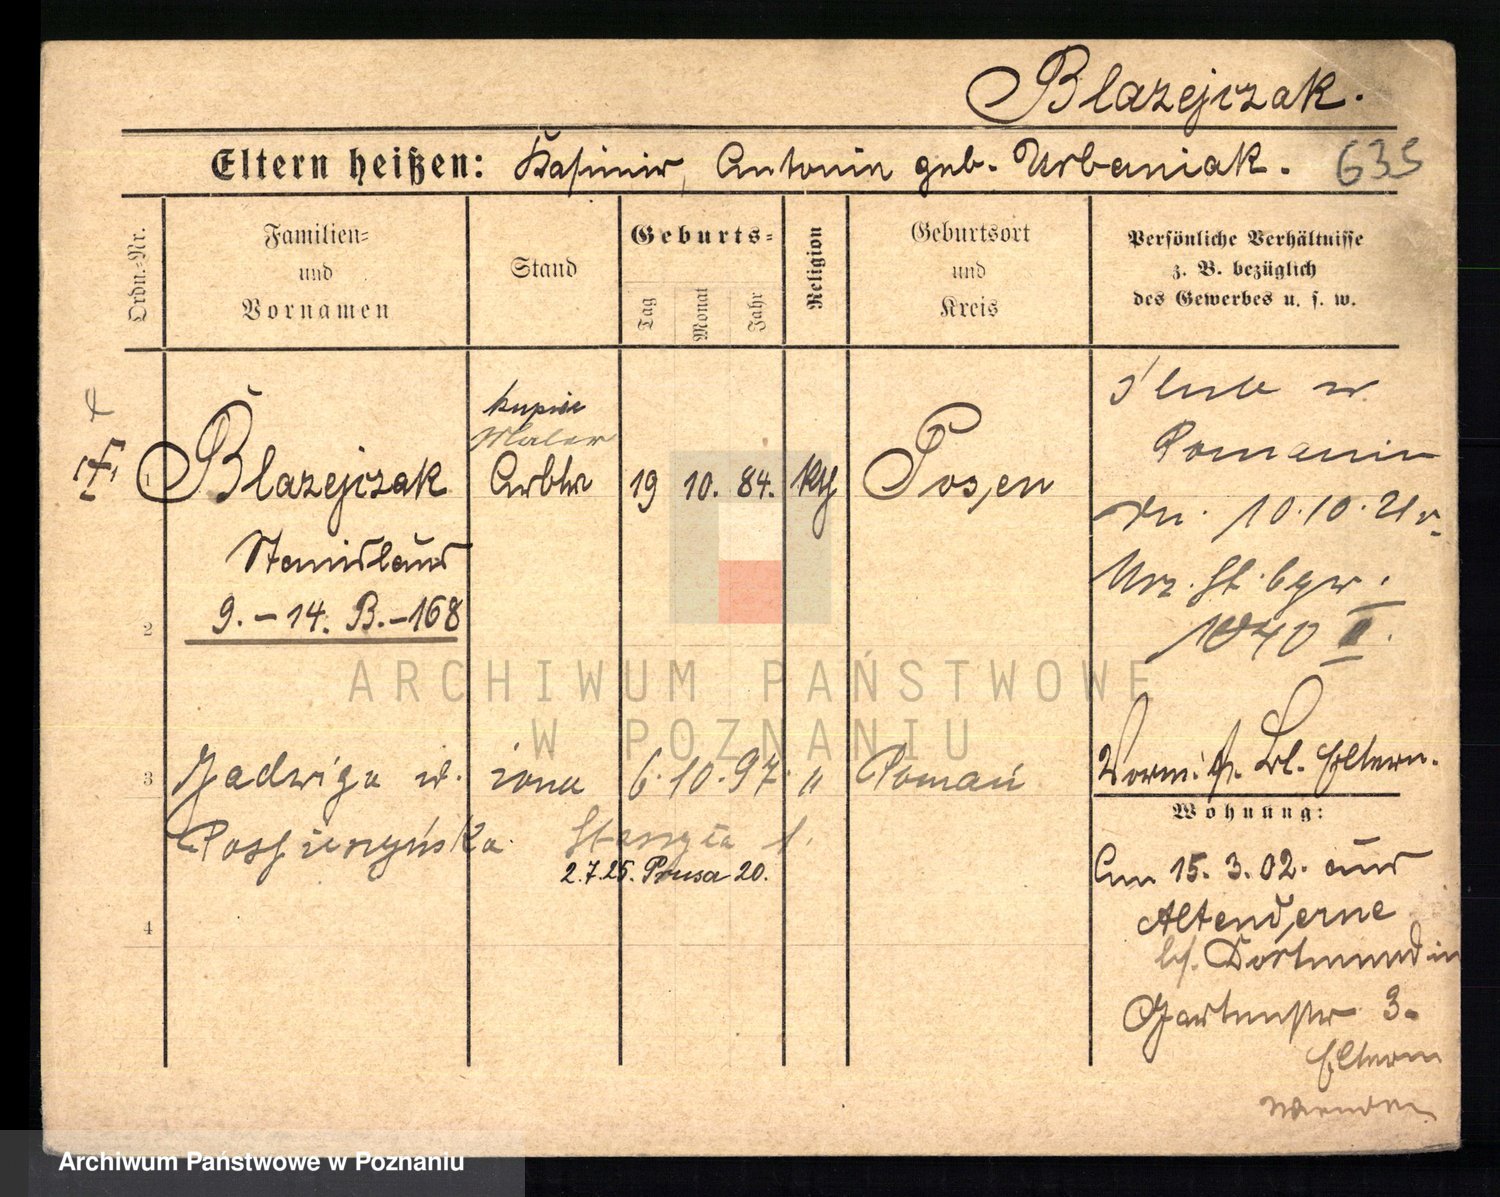 Blazejczak.
Eltern heißen: Kasimir, Antonin geb. Urbaniak. 635
Ordn.-Nr.
Familien-
und
Vornamen
Stand
Geburts-
Tag
Monat
Jahr
Religion
Geburtsort
und
Kreis
Persönliche Verhältnisse
z. B. bezüglich
des Gewerbes u. s. w.
kupiec
Maler
1 Blazejczak Arbtr 19 10. 84. kth Posen
Stanislaus
9. - 14. B. - 168
2
Ślub w
Poznaniu
dn. 10.10.21 r.
Urz. St. cyw.
1040 II.
3 Jadwiga w. żona 6. 10. 97. " Poznań
2.7.25. Prusa 20.
4
Vorm. s. bl. Eltern.
Wohnung:
Am 15. 3. 02. aus
Altenderne
bei Dortmund in
Gartenstr 3.
Eltern
wenden
ARCHIWUM PAŃSTWOWE
W POZNANIU
Archiwum Państwowe w Poznaniu